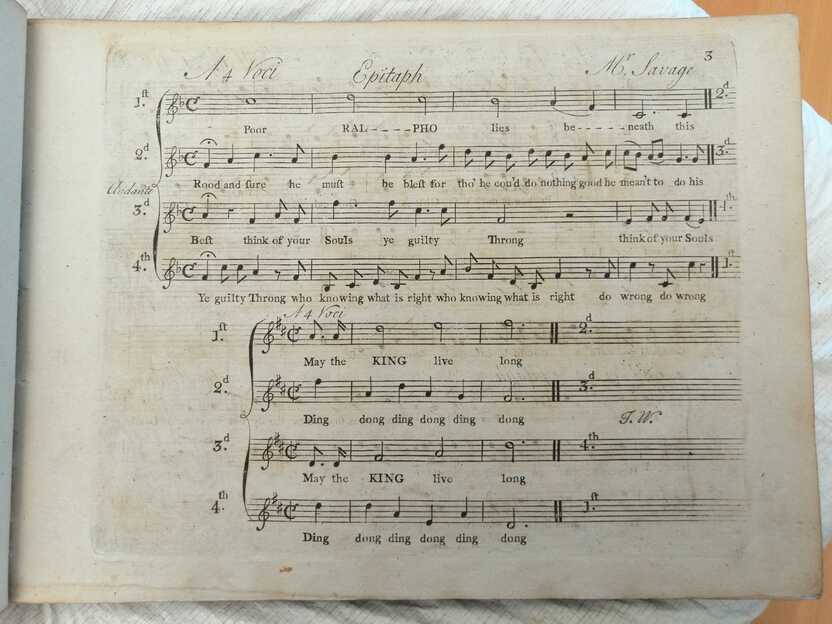 3
A 4 Voci Epitaph Mr. Savage
1.st 2.d
Poor RAL----PHO lies be-----neath this
2.d 3.d
Rood and ſure he muſt be bleſt for tho' he cou'd do nothing good he mean't to do his
Andante
3.d 4.th
Beſt think of your Souls ye guilty Throng think of your Souls
4.th 1.st
Ye guilty Throng who knowing what is right who knowing what is right do wrong do wrong
A 4 Voci
1.st 2.d
May the KING live long
2.d 3.d
Ding dong ding dong ding dong T.W.
3.d 4.th
May the KING live long
4.th 1.st
Ding dong ding dong ding dong